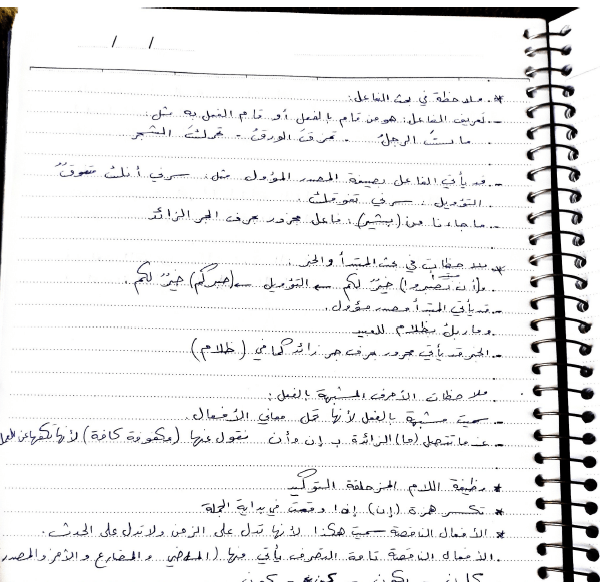 / /
* ملاحظة في بحث الفاعل:
- تعريف الفاعل: هو من قام بالفعل أو قام الفعل به مثل:
ماتَ الرجلُ - تمزقَ الورقُ - تحركتَ الشجر
- قد يأتي الفاعل بصيغة المصدر المؤول مثل: سرني أنك متفوقٌ
التؤويل: سرني تفوقك.
- ما جاءنا من (بشيرٍ): فاعل مجرور بحرف الجر الزائد
* ملاحظات في بحث المبتدأ والخبر
و(أن تصبروا) خيرٌ لكم ← التؤويل ← (صبركم) خيرٌ لكم.
- قد يأتي المبتدأ مصدر مؤول.
وما ربك بظلام للعبيد
- الخبر قد يأتي مجرور بحرف جر زائد كما في (ظلام)
ملاحظات الأحرف المشبهة بالفعل:
- سميت مشبهة بالفعل لأنها تحمل معاني الأفعال.
- عندما تتصل (ما) الزائدة بـ إن وأن نقول عنها (مكفوفة كافة) لأنها تكفها عن العمل
* وظيفة اللام المزحلقة التوكيد
* تكسر همزة (إن) إذا وقعت في بداية الجملة
* الأفعال الناقصة سميت هكذا لأنها تدل على الزمن ولا تدل على الحدث.
الأفعال الناقصة تامة التصرف يأتي منها (الماضي والمضارع والأمر والمصدر
كان - يكون - كن - كون